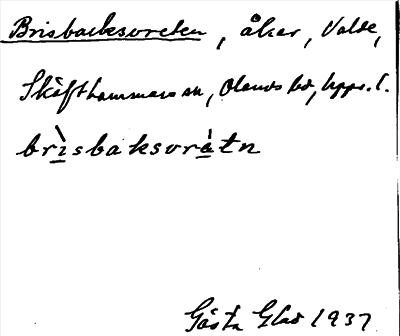 Brisbacksvreten, åker, Valde,
Skäfthammars sn, Olands hd, Upps. l.
brìsbaksvrètn
Gösta Glad 1937